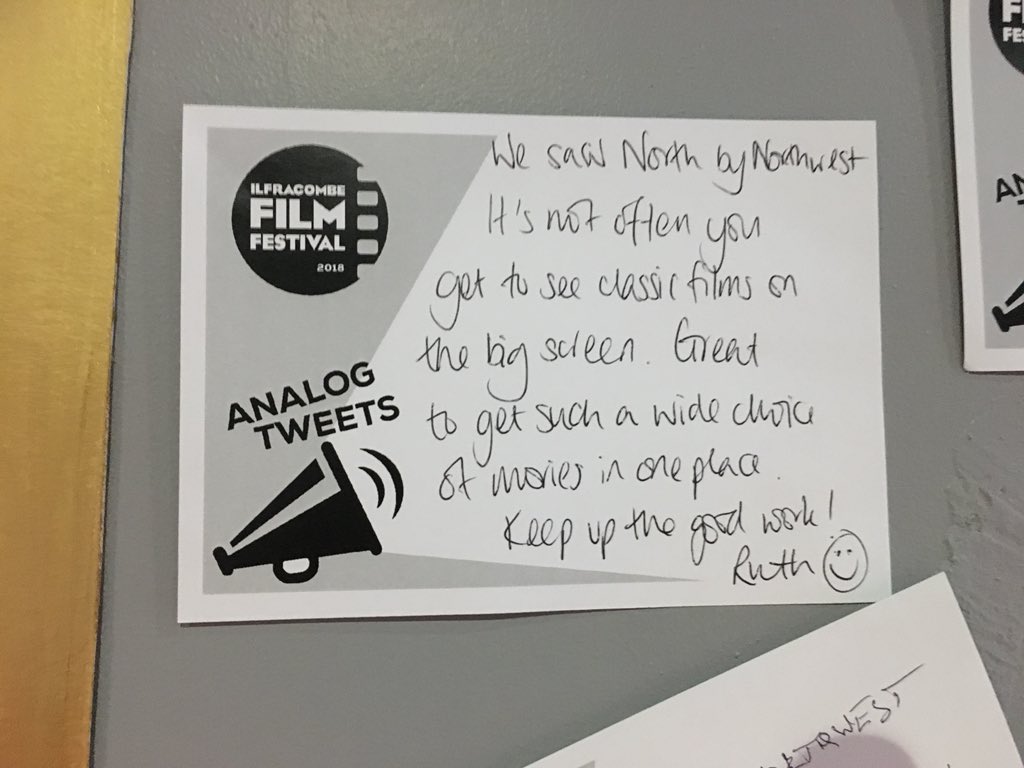 ILFRACOMBE
FILM
FESTIVAL
2018
ANALOG
TWEETS
We saw North by Northwest
It's not often you
get to see classic films on
the big screen. Great
to get such a wide choice
of movies in one place.
Keep up the good work!
Ruth